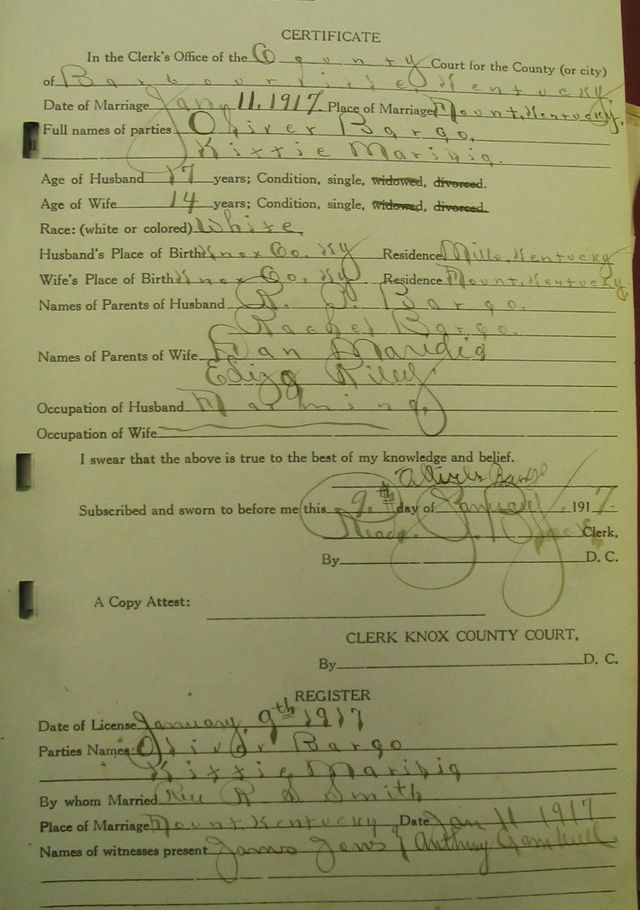 CERTIFICATE
In the Clerk's Office of the County Court for the County (or city)
of Barbourville, Kentucky.
Date of Marriage Jany 11, 1917. Place of Marriage Mount, Kentucky,
Full names of parties Oliver Bargo,
Kittie
Age of Husband 17 years; Condition, single, widowed, divorced.
Age of Wife 14 years; Condition, single, widowed, divorced.
Race: (white or colored) White
Husband's Place of Birth Knox Co. Ky Residence Mills, Kentucky
Wife's Place of Birth Knox Co. Ky. Residence Mount, Kentucky,
Names of Parents of Husband Bargo.
Rachel Bargo.
Names of Parents of Wife Dan
Eliza Riley
Occupation of Husband Farming,
Occupation of Wife
I swear that the above is true to the best of my knowledge and belief.
Bargo
Subscribed and sworn to before me this 9th day of January, 1917.
Read. Clerk,
By D. C.
A Copy Attest:
CLERK KNOX COUNTY COURT,
By D. C.
REGISTER
Date of License January 9th 1917
Parties Names Oliver Bargo
Kittie
By whom Married Smith
Place of Marriage Mount, Kentucky Date Jan 11 1917
Names of witnesses present James Jones & Anthony